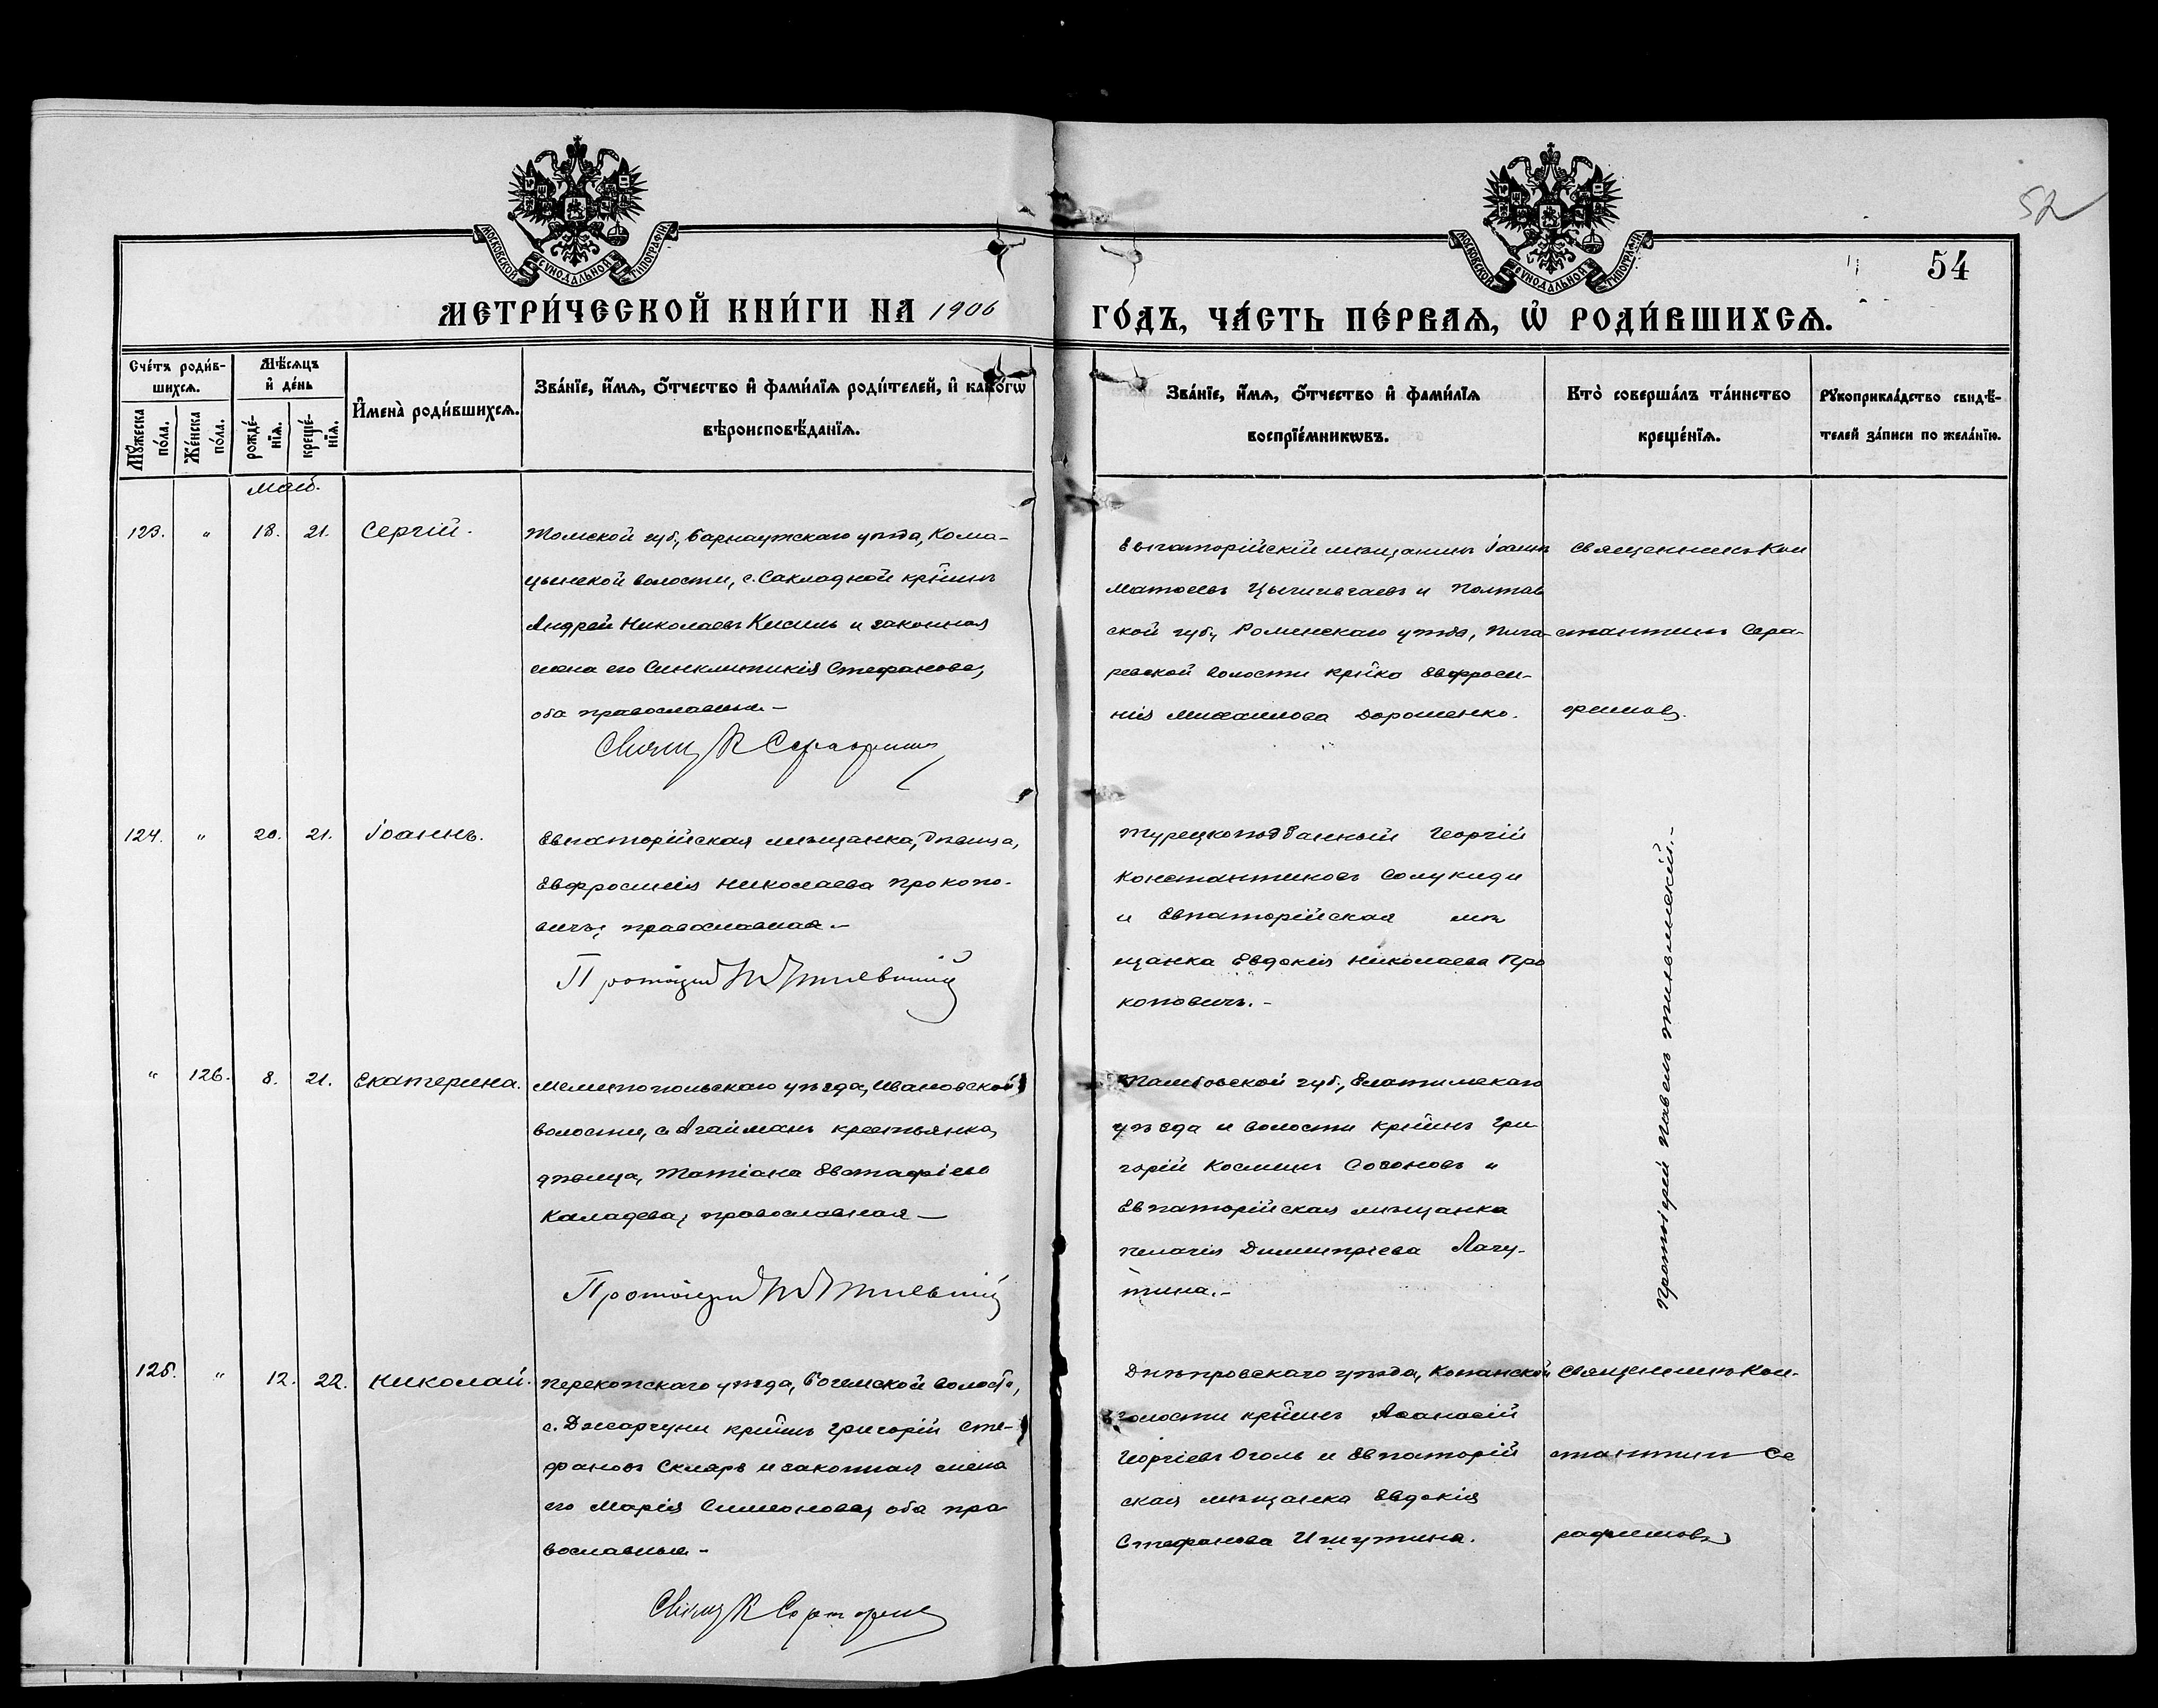 МОСКОВСКОЙ СѴНОДАЛЬНОЙ ТИПОГРАФІИ
МОСКОВСКОЙ СѴНОДАЛЬНОЙ ТИПОГРАФІИ
52
54
МЕТРИ́ЧЕСКОЙ КНИ́ГИ НА 1906
ГО́ДЪ, ЧА́СТЬ ПЕ́РВАѦ, Ѡ҆ РОДИ́ВШИХСѦ.
Сче́тъ роди́в-
шихсѧ.
Мꙋ́жеска по́ла.
Же́нска по́ла.
Мѣ́сѧцъ и҆ де́нь
рожде́-нїѧ.
креще́-нїѧ.
И҆мена̀ роди́вшихсѧ.
Зва́нїе, и҆́мѧ, ѻ҆́тчество и҆ фами́лїѧ роди́телей, и҆ како́гѡ
вѣроисповѣ́данїѧ.
Зва́нїе, и҆́мѧ, ѻ҆́тчество и҆ фами́лїѧ
воспрїе́мникѡвъ.
Кто̀ соверша́лъ та́инство
креще́нїѧ.
Рꙋкоприкла́дство свидѣ́-
телей за́писи по жела́нїю.
Май.
123. " 18. 21. Сергій.
Томской губ., Барнаульскаго уѣзда,
волости, с. крѣинъ
Андрей Николаевъ Кисиль и законная
жена его Синклитикія Стефанова,
оба православные. –
Свящ. К Серафимовъ
Евпаторійскій мѣщанинъ Іоаннъ
и Полтав
ской губ., Роменскаго уѣзда,
волости крѣйка Евфроси-
нія Михаилова Дорошенко.
Священникъ Кон
стантинъ Сера-
фимовъ.
124. " 20. 21. Іоаннъ.
Евпаторійская мѣщанка, дѣвица,
Евфросинія Николаева Прокопо-
вичъ, православная. –
Протоіерей П Тихвинскій
Турецкоподданный Георгій
Константиновъ Солукиди
и Евпаторійская мѣ
щанка Евдокія Николаева Про
коповичъ. –
Протоіерей Павелъ
" 126. 8. 21. Екатерина.
Мелитопольскаго уѣзда, Ивановской
волости, с. Агайманъ крестьянка,
дѣвица, Татіана Евстафіева
Каладева, православная –
Протоіерей П
Тамбовской губ., Елатимскаго
уѣзда и волости крѣинъ Гри
горій Косминъ и
Евпаторійская мѣщанка
Пелагія Димитріева Лагу-
тина. –
125. " 12. 22. Николай.
Перекопскаго уѣзда, Богемской волости,
с. Джаргуни крѣинъ Григорій Сте-
фановъ Скляръ и законная жена
его Марія Симонова, оба пра
вославные –
Свящ К Серафимовъ
Днѣпровскаго уѣзда, Копанской
волости крѣинъ Аѳанасій
Георгіевъ Оголь и Евпаторій
ская мѣщанка Евдокія
Стефанова Ишутина.
Священникъ Кон-
стантинъ Се
рафимовъ